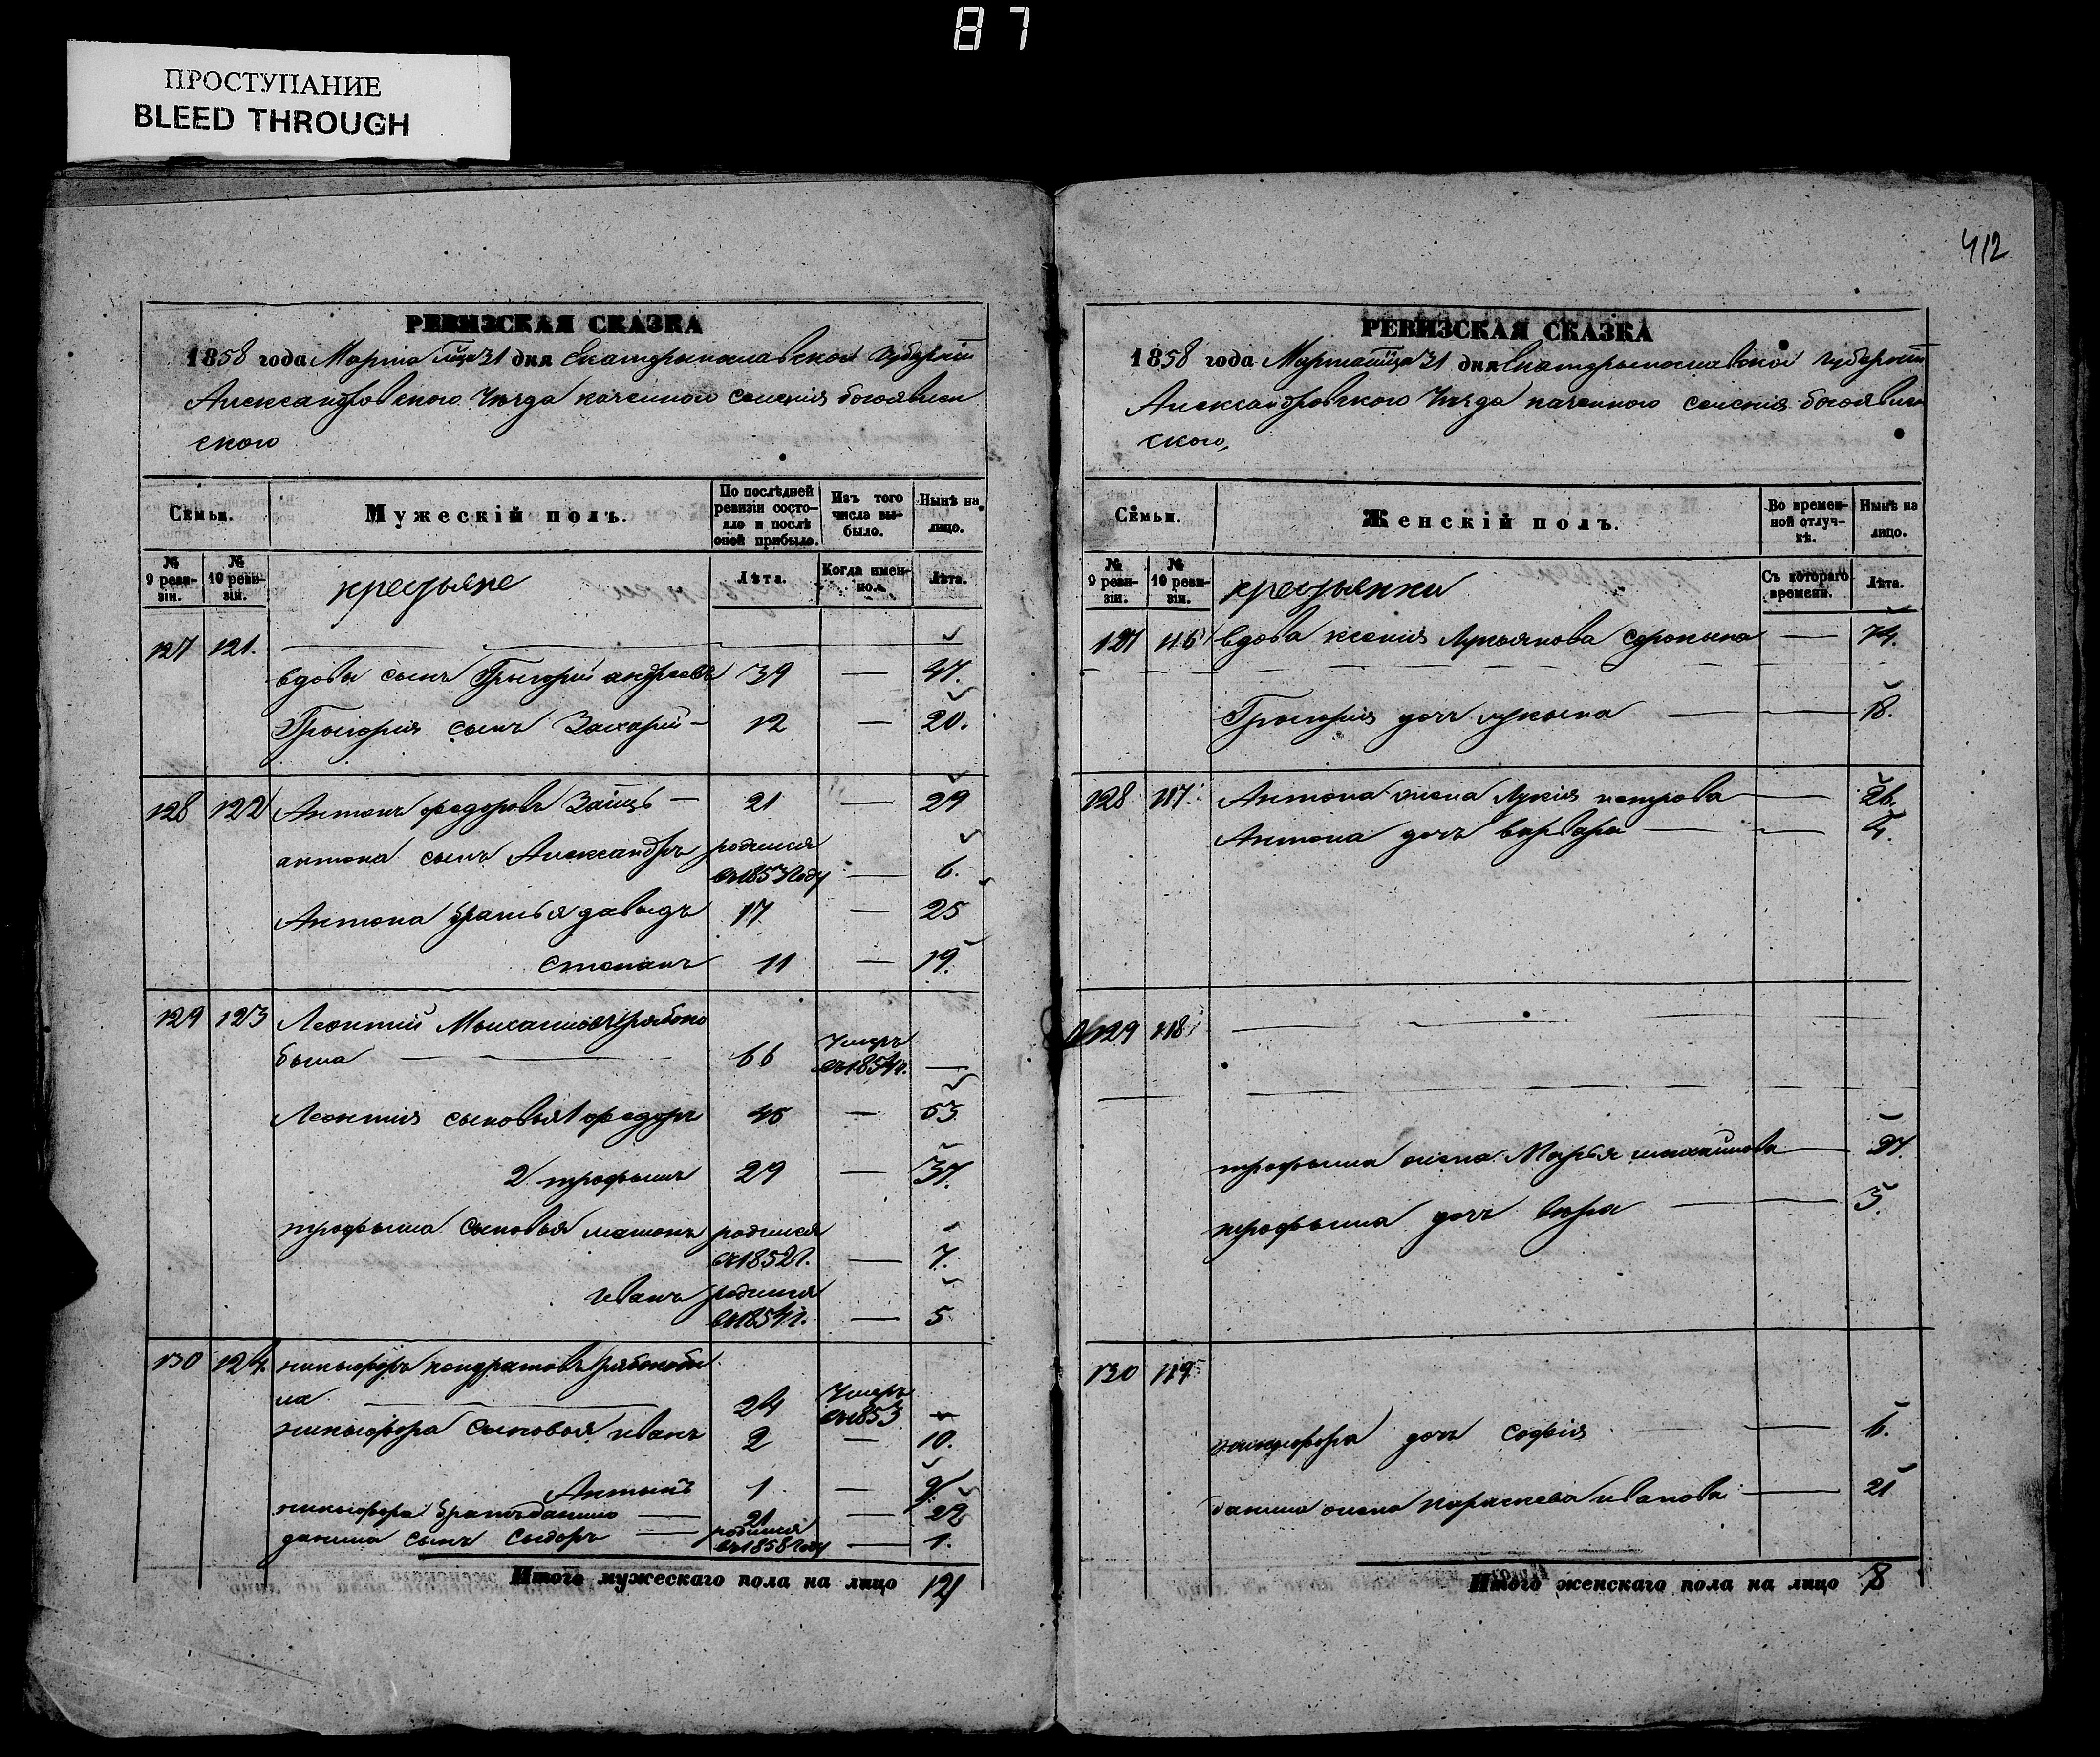 87
ПРОСТУПАНИЕ
BLEED THROUGH
412
РЕВИЗСКАЯ СКАЗКА
1858 года Марта м‑ца 31 дня Екатеринославской Губерніи
Александровского Уезда казенного селенія богоявлен
ского
Семьи.
Мужескій полъ.
По послѣдней ревизіи состояло и послѣ оной прибыло.
Изъ того числа выбыло.
Нынѣ на лицо.
№ 9 ревизіи.
№ 10 ревизіи.
крестьяне
Лѣта.
Когда именно.
Лѣта.
127 121.
вдовы сынъ Григорій андреевъ 39 — 47.
Григорія сынъ Захарій — 12 — 20.
128 122 Антонъ федоровъ Заіцъ — 21 — 29
антона сынъ Александръ родился
въ 1853 году — 6.
Антона братья давыдъ 17 — 25
степанъ 11 — 19.
129 123 Леонтій Михайловъ рябоко
была — 66 Умеръ въ 1854 г. —
Леонтія сыновья 1 федоръ 45 — 53
2 трофымъ 29 — 37.
трофыма сыновья родился
въ 1852 г. — 7.
иванъ родился
въ 1854 г. — 5
130 124 никыфоръ кондратовъ рябокобы
ла — 24 Умеръ въ 1853 —
никыфора сыновья иванъ 2 — 10.
Антынъ 1 — 9.
никыфора братъ данило — 21 — 29
данила сынъ сыдоръ — родился въ 1858 году — 1.
Итого мужескаго пола на лицо 12
РЕВИЗСКАЯ СКАЗКА
1858 года Марта м‑ца 31 дня Екатеринославской губерніи
Александровского Уезда казенного селенія богоявлен
ского,
Семьи.
Женскій полъ.
Во временной отлучкѣ.
Нынѣ на лицо.
№ 9 ревизіи.
№ 10 ревизіи.
крестьянки
Съ котораго времени.
Лѣта.
127 116 вдова ксенія Лукьянова — 74.
Григорія дочь — 18.
128 117. Антона жена Лукія петрова — 26.
Антона дочь варвара — 4.
129 118
трофыма жена Марья михайлова — 27.
трофыма дочь вера — 3.
130 119
никыфора дочь софія — 6.
данила жена параскева иванова — 21
Итого женскаго пола на лицо 8